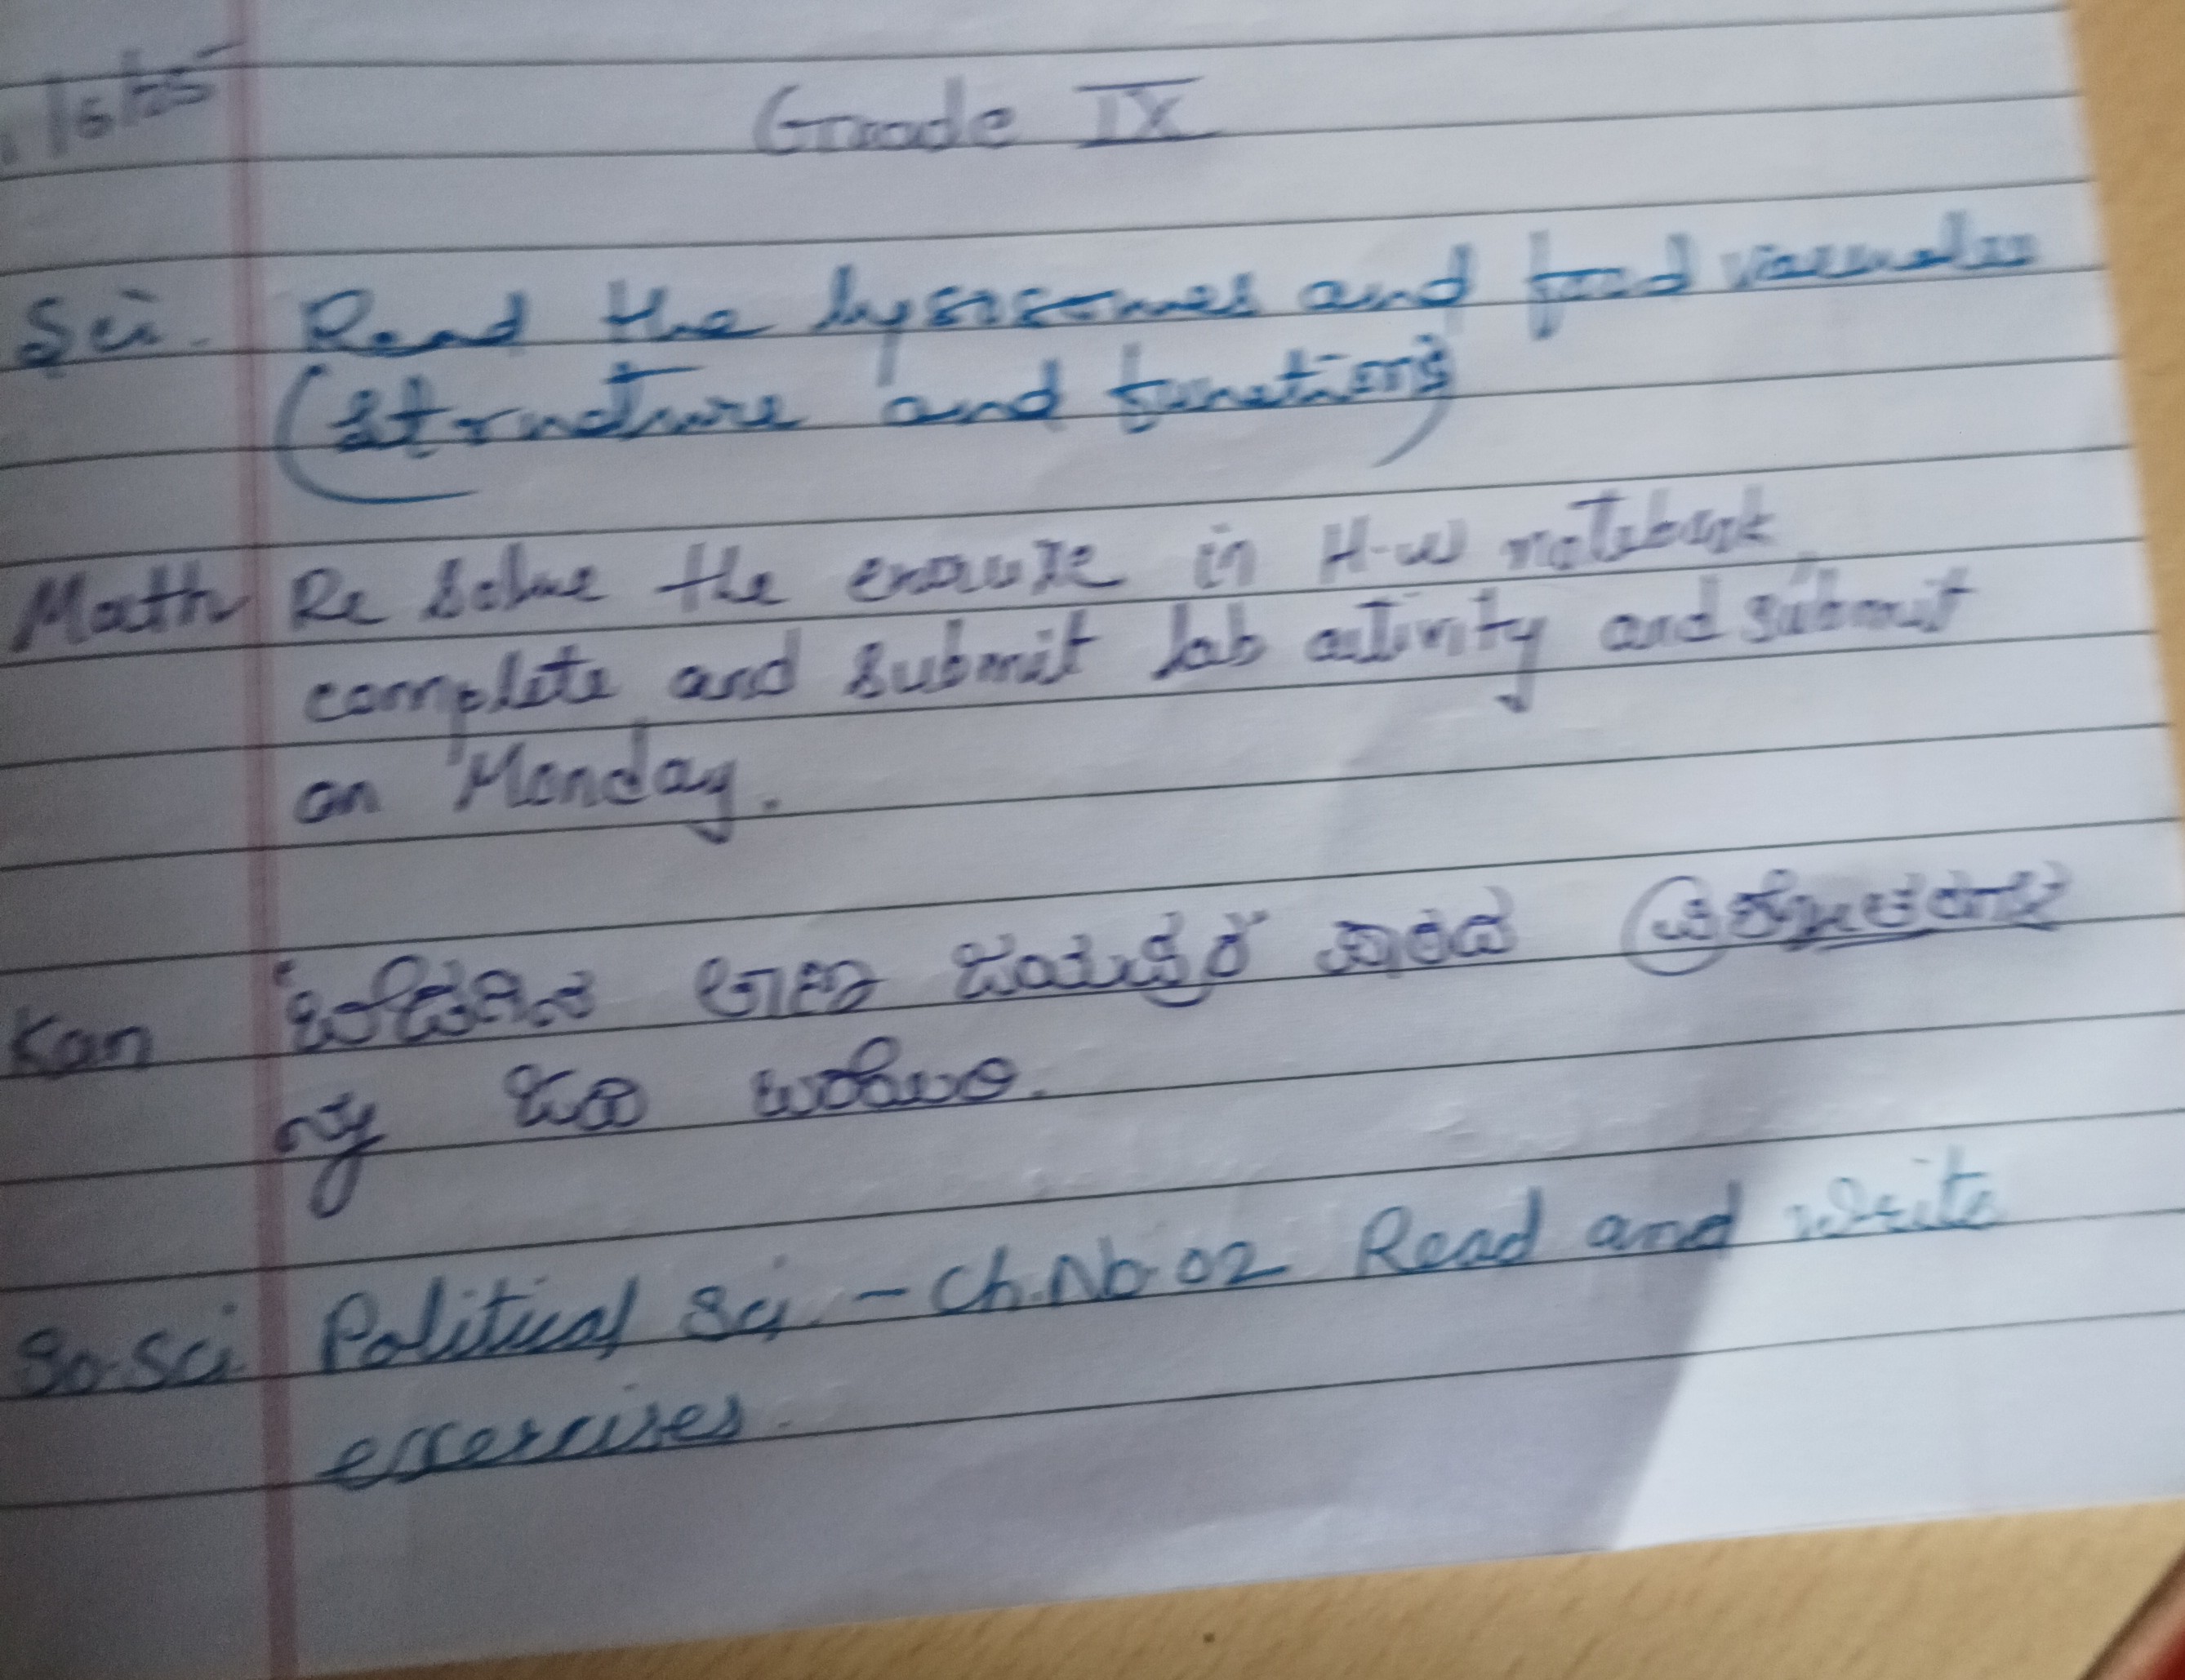 /6/25
Grade IX
Sci. Read the lysosomes and food vacuoles
(structure and functions)
Math Re solve the exercise in H-w notebook,
complete and submit lab activity and submit
on Monday.
Kan ಬೆಡಗಿನ ತಾಣ ಜಯಪುರ ಪಾಠದ ಪ್ರಶ್ನೋತ್ತರಗಳ
ನ್ನು ಓದಿ ಬರೆಯಿರಿ.
So.Sci Political Sci. - Ch.No.02 Read and write
exercises.